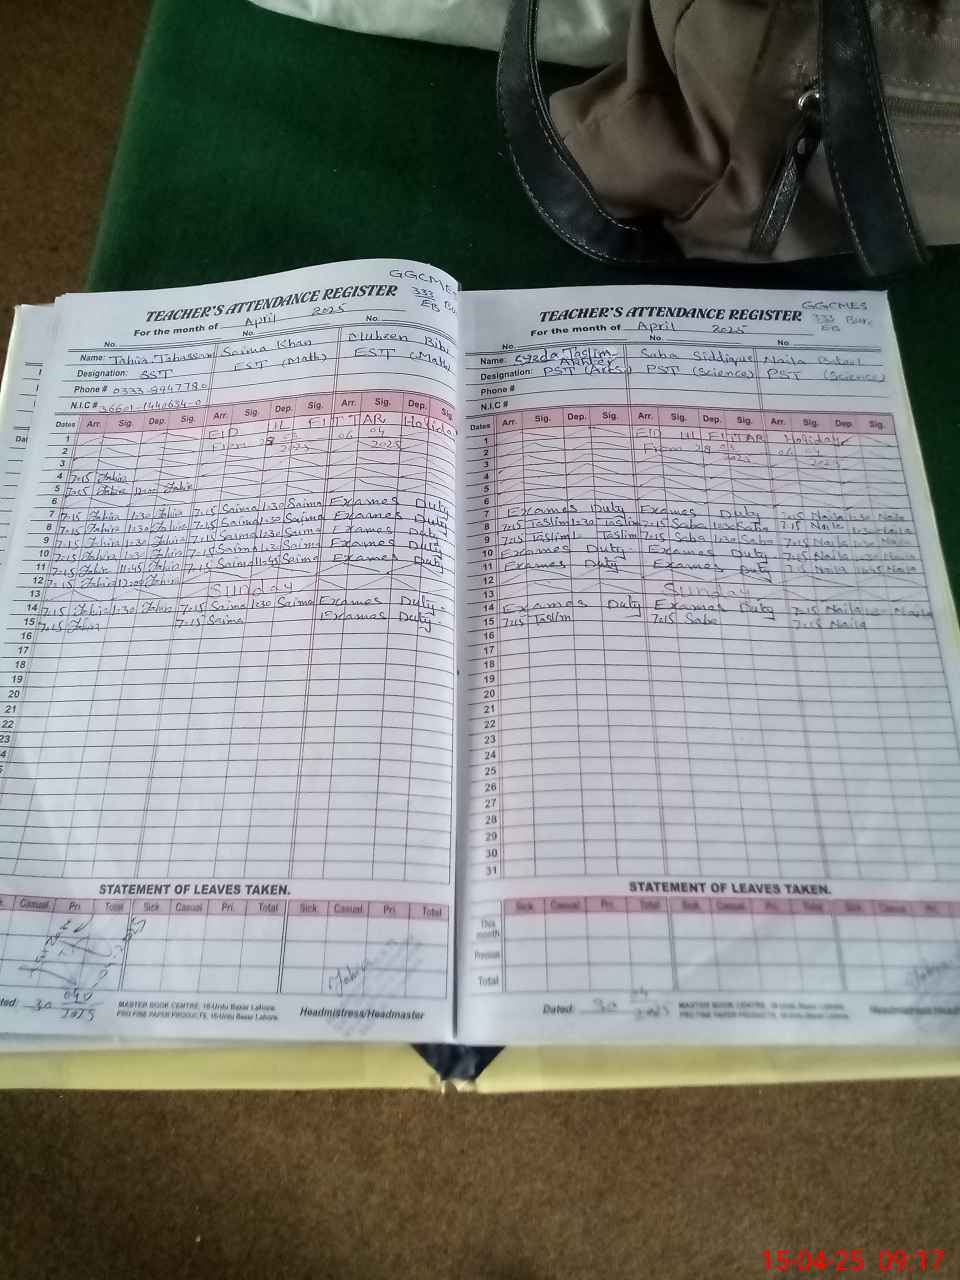 GGCMES
333 EB
TEACHER'S ATTENDANCE REGISTER
For the month of April 2025
No. No. No.
Name: Tahira Tabassam Saima Khan Muheen Bibi
Designation: SST EST (Math) EST (Math)
Phone #
N.I.C #
Dates Arr. Sig. Dep. Sig. Arr. Sig. Dep. Sig. Arr. Sig. Dep. Sig.
1 EID UL FITTAR Holiday
2 From 28 2025 06 04 2025
3
4 7:15 Tahira
5 7:15 Tahira 12:00 Tahira
6
7 7:15 Tahira 1:30 Tahira 7:15 Saima 1:30 Saima Exames Duty
8 7:15 Tahira 1:30 Tahira 7:15 Saima 1:30 Saima Exames Duty
9 7:15 Tahira 1:30 Tahira 7:15 Saima 1:30 Saima Exames Duty
10 7:15 Tahira 1:30 Tahira 7:15 Saima 1:30 Saima Exames Duty
11 7:15 Tahira 11:45 Tahira 7:15 Saima 11:45 Saima Exames Duty
12 7:15 Tahira 12:00 Tahira
13 Sunday
14 7:15 Tahira 1:30 Tahira 7:15 Saima 1:30 Saima Exames Duty
15 7:15 Tahira 7:15 Saima Exames Duty
16
17
18
19
20
21
22
23
STATEMENT OF LEAVES TAKEN.
Casual Pri. Total Sick Casual Pri. Total Sick Casual Pri. Total
Tahira
30 2025
MASTER BOOK CENTRE, 16-Urdu Bazar Lahore.
PRO FINE PAPER PRODUCTS, 16-Urdu Bazar Lahore.
Headmistress/Headmaster
GGCMES
333 EB
TEACHER'S ATTENDANCE REGISTER
For the month of April 2025
No. No. No.
Name: Syeda Taslim Akhter Saba Siddique Naila Batool
Designation: PST (Arts) PST (Science) PST (Science)
Phone #
N.I.C #
Dates Arr. Sig. Dep. Sig. Arr. Sig. Dep. Sig. Arr. Sig. Dep. Sig.
1 EID UL FITTAR Holiday
2 From 28 2025 06 04 2025
3
4
5
6
7 Exames Duty Exames Duty 7:15 Naila 1:30 Naila
8 7:15 Taslim 1:30 Taslim 7:15 Saba 1:30 Saba 7:15 Naila 1:30 Naila
9 7:15 Taslim Taslim 7:15 Saba 1:30 Saba 7:15 Naila 1:30 Naila
10 Exames Duty Exames Duty 7:15 Naila 1:30 Naila
11 Exames Duty Exames Duty 7:15 Naila 11:45 Naila
12
13 Sunday
14 Exames Duty Exames Duty 7:15 Naila 1:30 Naila
15 7:15 Taslim 7:15 Saba 7:15 Naila
16
17
18
19
20
21
22
23
24
25
26
27
28
29
30
31
STATEMENT OF LEAVES TAKEN.
Sick Casual Pri. Total Sick Casual Pri. Total Sick Casual Pri.
This month
Previous
Total
Dated: 30 04 2025
MASTER BOOK CENTRE, 16-Urdu Bazar Lahore.
PRO FINE PAPER PRODUCTS, 16-Urdu Bazar Lahore.
15-04-25 09:17